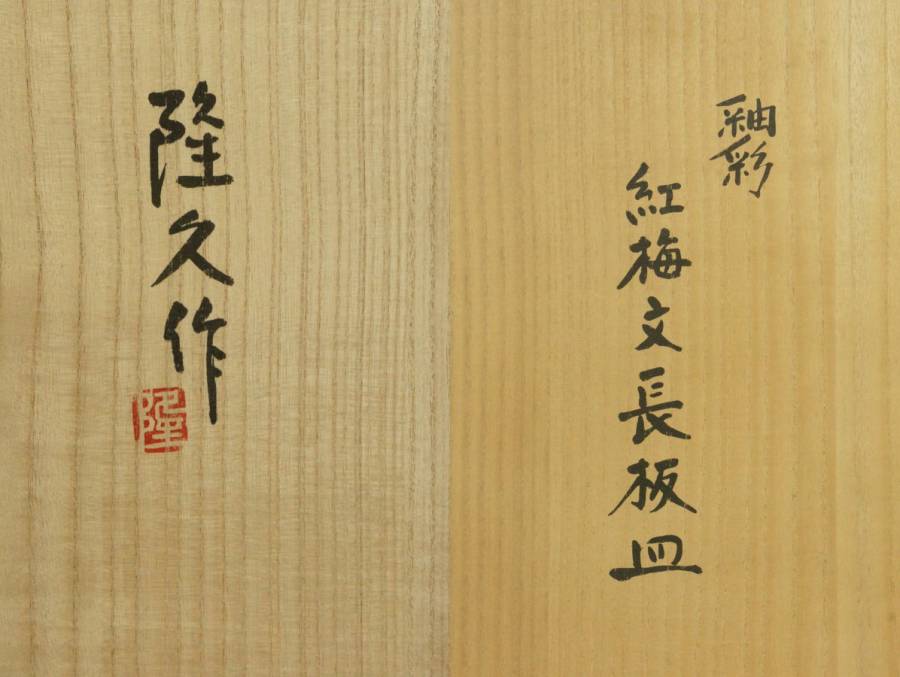 釉彩
紅梅文長板皿
隆久作
隆